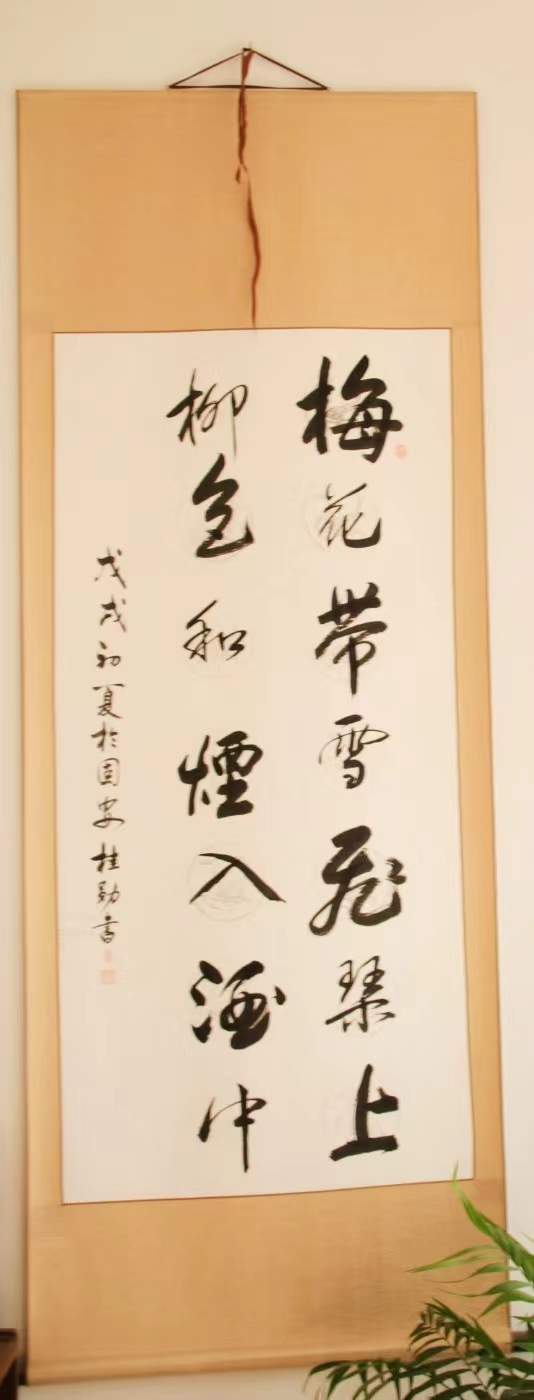 梅花带雪飛琴上
柳色和煙入酒中
戊戌初夏於固安桂勛書